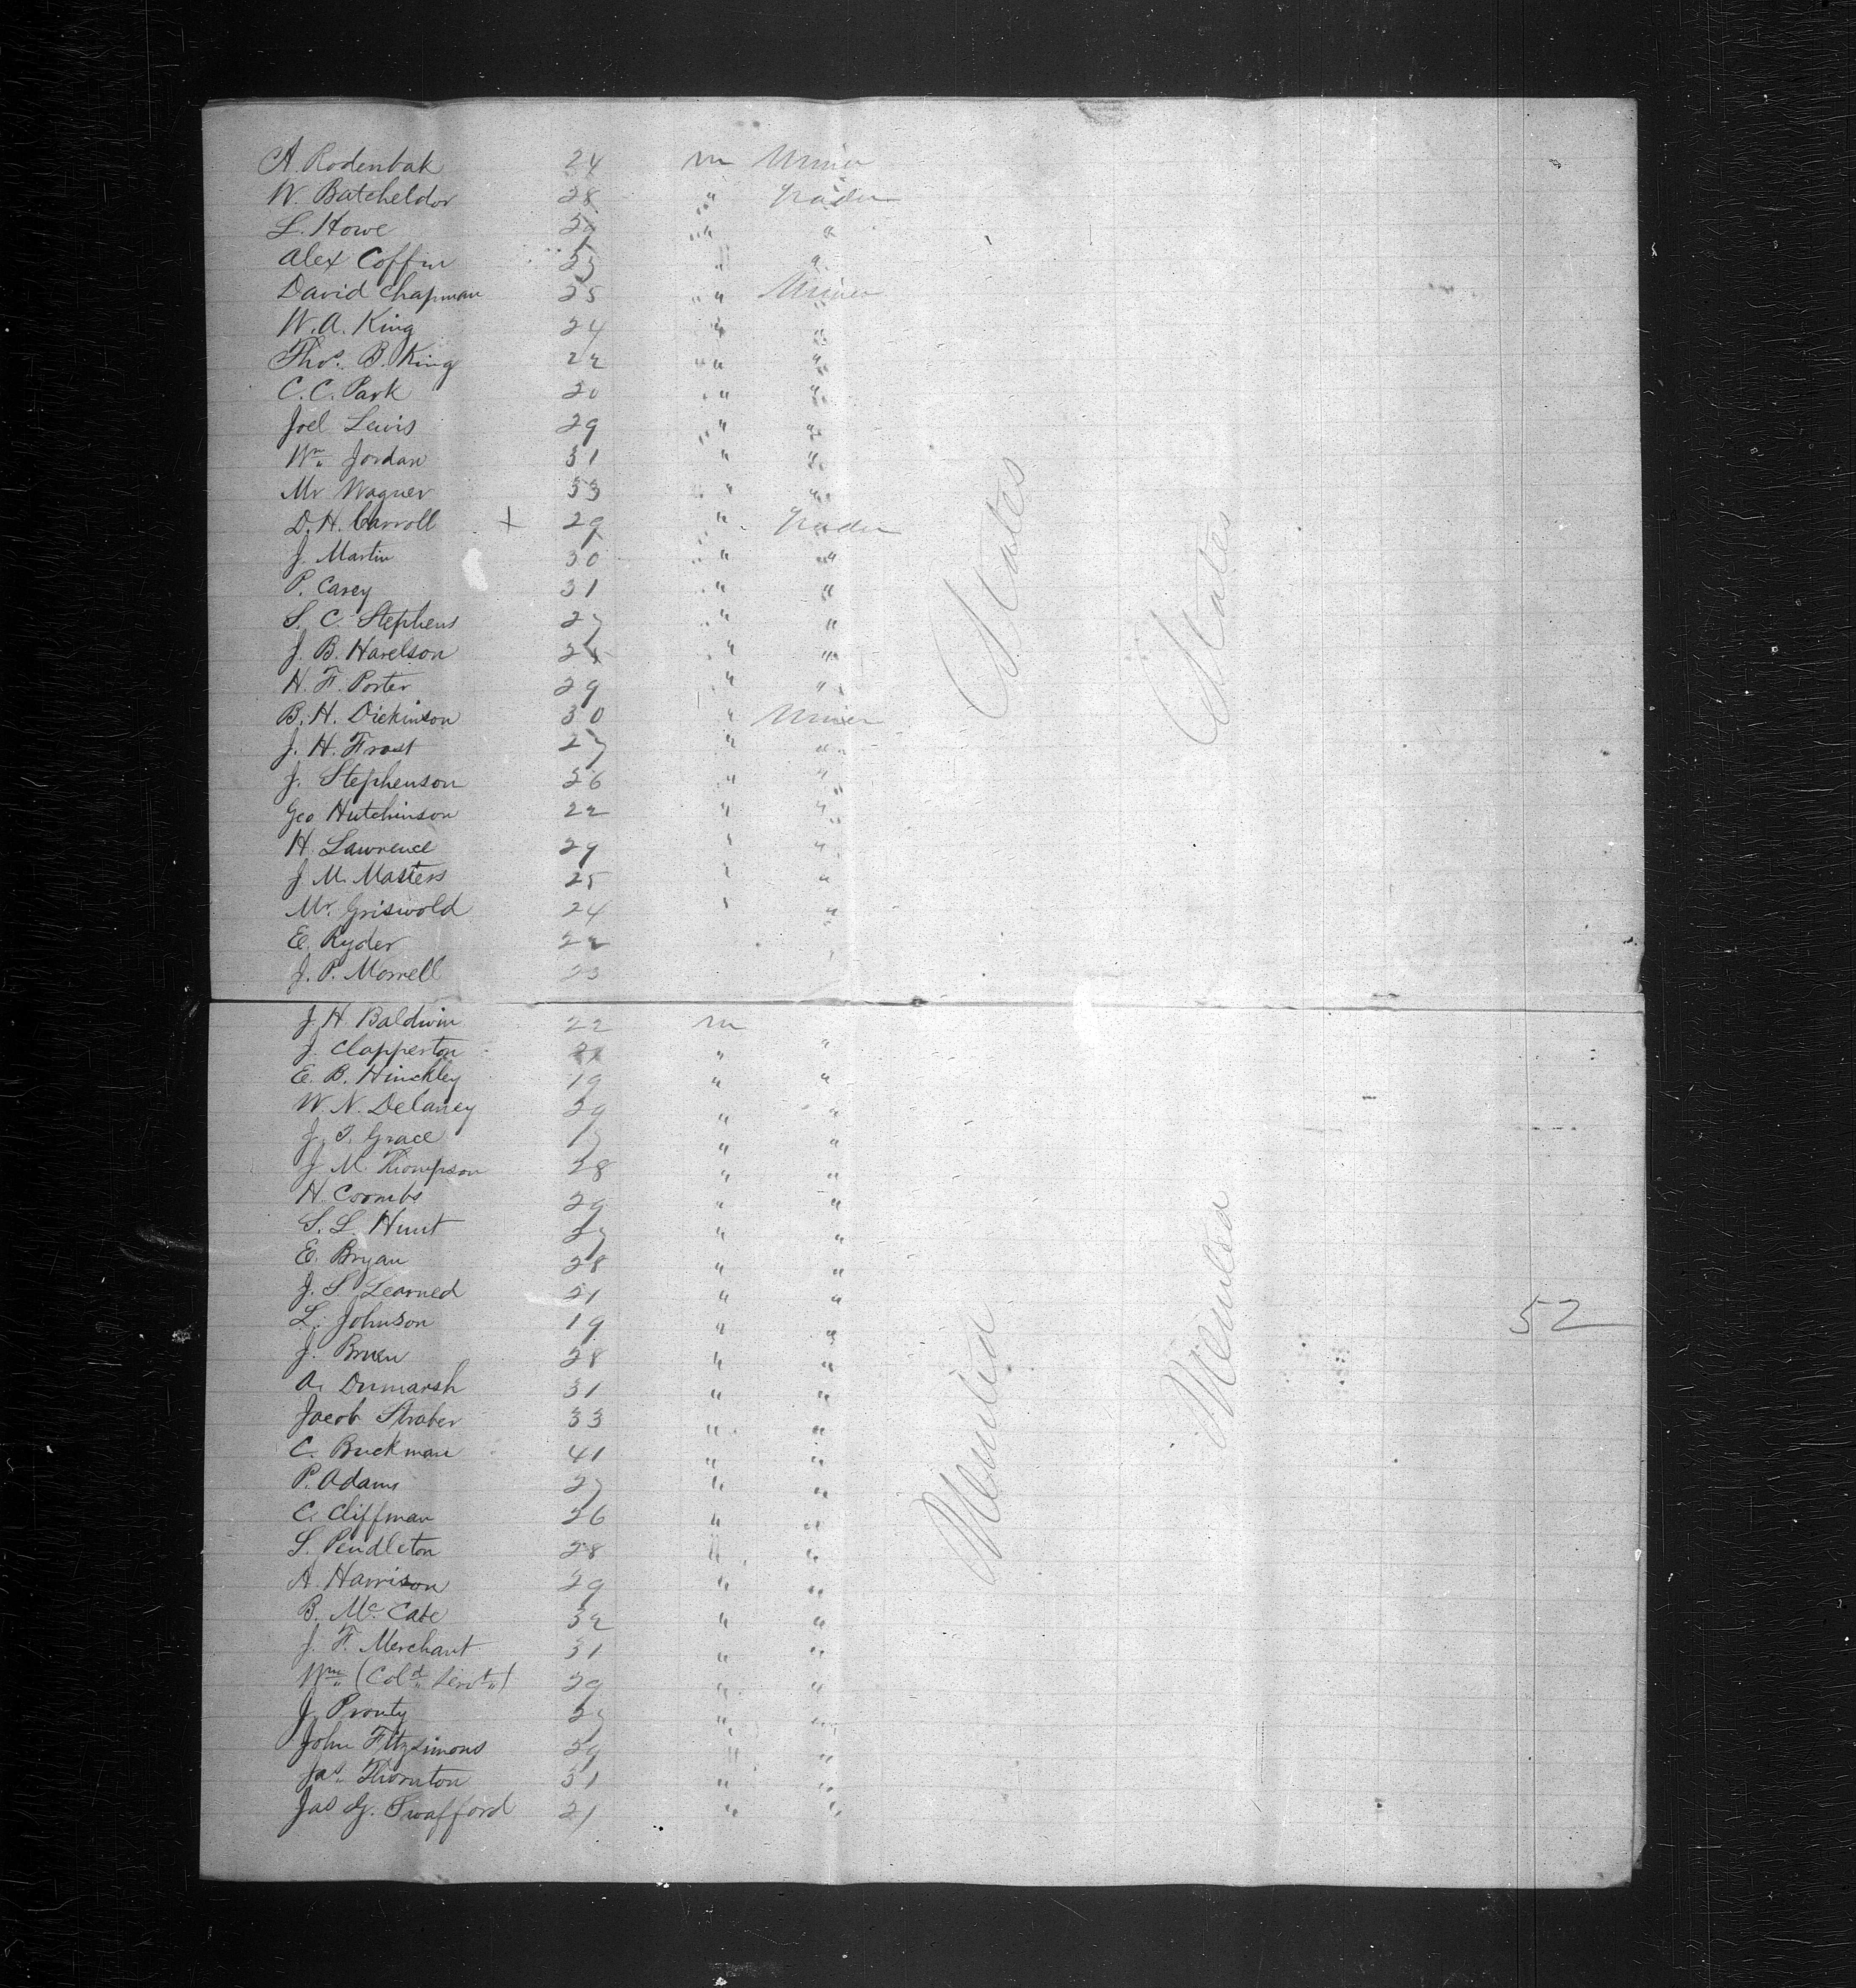 A. Rodenbak 24 m Miner
W. Batcheldor 28 " Trader
L. Howe " "
Alex Coffin " "
David Chapman 25 " Miner
W. A. King 24 " "
Thos. B. King 22 " "
C. C. Park 20 " "
Joel Lewis 29 " "
Wm Jordan 31 " "
Mr Wagner 33 " "
D. H. Carroll + 29 " Trader
J. Martin 30 " "
P. Carey 31 " "
S. C. Stephens 27 " "
J. B. Harelson " "
H. F. Porter 29 " "
B. H. Dickinson 30 " Miner
J. H. Frost 27 " "
J. Stephenson 26 " "
Geo Hutchinson 22 " "
H. Lawrence 29 " "
J. M. Masters 25 " "
Mr. Griswold 24 " "
E. Ryder 22
J. P. Morrell 23
States
States
J. H. Baldwin 22 m
J. Clapperton " "
E. B. Hinckley 19 " "
W. N. Delaney 29 " "
J. T. Grace 17 " "
J. M. Thompson 28 " "
H. Coombs 29 " "
S. L. Hunt 27 " "
E. Bryan 28 " "
J. S. Learned 21 " "
L. Johnson 19 " "
J. Bruen 28 " "
A. Dumarsh 31 " "
Jacob Straber 33 " "
C. Buckman 41 " "
P. Adams 27 " "
C. Cliffman 26 " "
S. Pendleton 28 " "
A. Harrison 29 " "
B. McCabe 32 " "
J. F. Merchant 31 " "
Wm (Cold Servt) 29 " "
J. Prouty 27 " "
John Fitzsimons 29 " "
Jas. Thornton 31 " "
Jas G. Swafford 21 " "
52